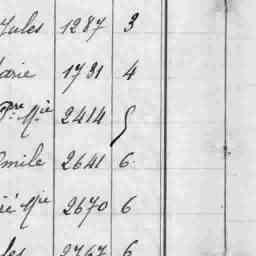 Jules 1287 3
Marie 1731 4
Pre Mie 2414 5
Emile 2641 6
Mie 2670 6
2767 6